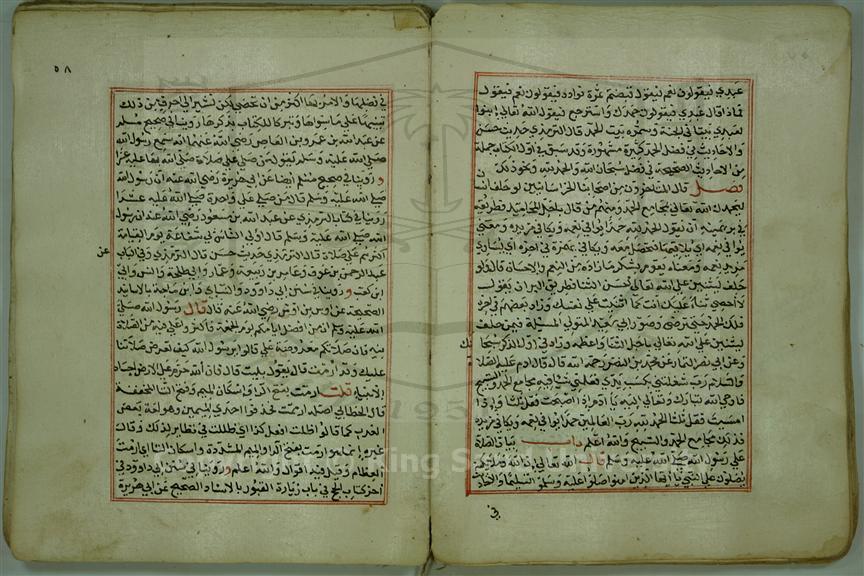 عبدي فيقولون نعم فيقول قبضتم ثمرة فواده فيقولون نعم فيقول
فماذا قال عبدي فيقولون حمدك واسترجع فيقول الله تعالى ابنوا
لعبدي بيتا في الجنة وسموه بيت الحمد قال الترمذي حديث حسن
والاحاديث في فضل الحمد كثيرة مشهورة وقد سبق في اول الكتاب جملة
من الاحاديث الصحيحة في فضل سبحان الله والحمد لله ونحو ذلك
فصل قال المتاخرون من اصحابنا الخراسانيين لو حلف انسان
ليحمدن الله تعالى بمجامع الحمد ومنهم من قال باجل التحاميد فطريقه
في بر يمينه ان يقول الحمد لله حمدا يوافي نعمه ويكافي مزيده ومعنى
يوافي نعمه اي يلاقيها فتحصل معه ويكافي بهمزة في اخره اي يساوي
مزيد نعمه ومعناه يقوم بشكر ما زاده من النعم والاحسان قالوا ولو
حلف ليثنين على الله تعالى احسن الثنا فطريق البر ان يقول
لا احصي ثناء عليك انت كما اثنيت على نفسك وزاد بعضهم في اخره
فلك الحمد حتى ترضى وصور ابو سعيد المتولي المسئلة فيمن حلف
ليثنين على الله تعالى باجل الثنا واعظمه وزاد في اول الذكر سبحانك
وعن ابي نصر التمار عن محمد بن النضر رحمه الله قال قال ادم عليه الصلاة
والسلام رب شغلتني بكسب يدي فعلمني شيا فيه مجامع الحمد والتسبيح
فاوحى الله تبارك وتعالى اليه يا ادم اذا اصبحت فقل ثلثا واذا
امسيت فقل ثلثا الحمد لله رب العالمين حمدا يوافي نعمه ويكافي مزيده
فذلك مجامع الحمد والتسبيح والله اعلم باب الصلاة
على رسول الله صلى الله عليه وسلم قال الله تعالى ان الله وملائكته
يصلون على النبي يا ايها الذين امنوا صلوا عليه وسلموا تسليما والاحاديث
في
٥٨
في فضلها والامر بها اكثر من ان تحصى لكن نشير الى احرف من ذلك
تنبيها على ما سواها وتبركا للكتاب بذكرها روينا في صحيح مسلم
عن عبد الله بن عمرو بن العاص رضي الله عنهما انه سمع رسول الله
صلى الله عليه وسلم يقول من صلى علي صلاة صلى الله بها عليه عشرا
وروينا في صحيح مسلم ايضا عن ابي هريرة رضي الله عنه ان رسول الله
صلى الله عليه وسلم قال من صلى علي واحدة صلى الله عليه عشرا
وروينا في كتاب الترمذي عن عبد الله بن مسعود رضي الله عنه ان رسول
الله صلى الله عليه وسلم قال اولى الناس بي يوم القيامة
اكثرهم علي صلاة قال الترمذي حديث حسن قال الترمذي وفي الباب عن
عبد الرحمن بن عوف وعامر بن ربيعة وعمار وابي طلحة وانس وابي
ابن كعب وروينا في سنن ابي داوود والنساي وابن ماجة بالاسانيد
الصحيحة عن اوس بن اوس رضي الله عنه قال قال رسول الله صلى
الله عليه وسلم ان من افضل ايامكم يوم الجمعة فاكثروا علي فيه من الصلاة
فيه فان صلاتكم معروضة علي قالوا يا رسول الله كيف تعرض صلاتنا
عليك وقد ارمت قال يقول بليت قال فان الله حرم على الارض اجساد
الانبياء قلت ارمت بفتح الراء واسكان الميم وفتح التاء المخففة
قال الخطابي اصله ارممت فحذفوا احدى الميمين وهو لغة لبعض
العرب كما قالوا ظلت افعل كذا اي ظللت في نظاير لذلك وقال
غيره انما هو ارمت بفتح الراء والميم المشددة واسكان التاء اي ارمت
العظام وقيل فيه اقوال والله اعلم وروينا في سنن ابي داوود في
اخر كتاب الحج في باب زيارة القبور بالاسناد الصحيح عن ابي هريرة